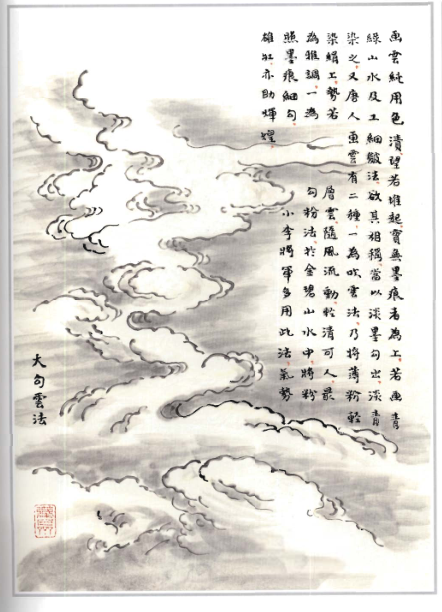 画雲純用色漬望若堆起實無墨痕者為上若画青
綠山水及工細皴法欲其相稱當以淡墨勾出淡青
染之又唐人画雲有二種一為吹雲法乃將薄粉輕
染絹上勢若層雲隨風流動輕清可人最
為雅調一為勾粉法於金碧山水中將粉
照墨痕細勾小李將軍多用此法氣勢
雄壯亦助輝煌
大勾雲法